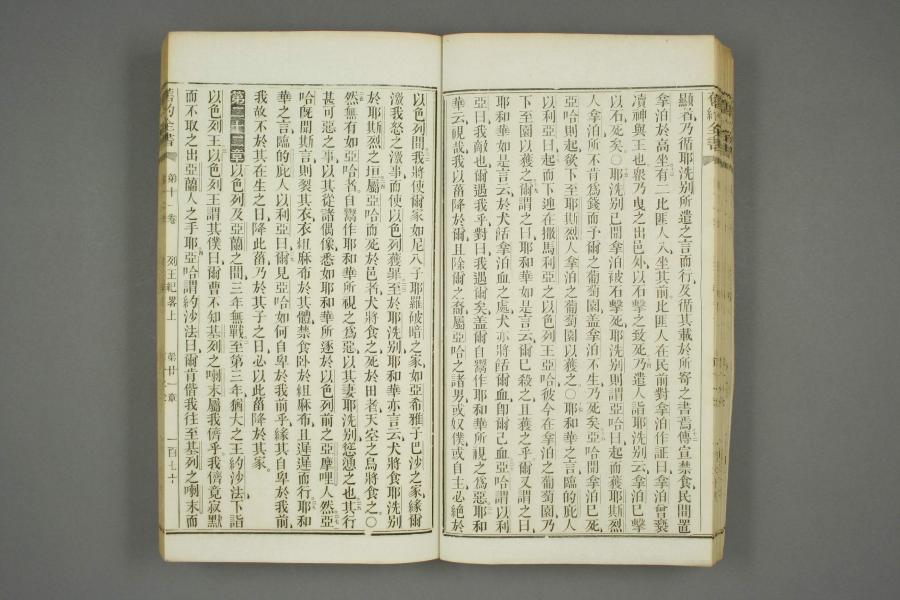 顯者乃循耶洗別所遣之言而行及循其載於所寄之書焉傳宣禁食民間置
拿泊於高坐有二北匪人入坐其前比匪人在民前對拿泊作証曰拿泊曾褻
瀆神與王也衆乃曳之出邑外以石擊之致死乃遣人詣耶洗別云拿泊已擊
以石死矣○耶洗別已聞拿泊被石擊死耶洗別則謂亞哈曰起而獲耶斯烈
人拿泊所不肯爲錢而予爾之葡萄園蓋拿泊不生乃死矣亞哈聞拿泊已死
亞哈則起欲下至耶斯烈人拿泊之葡萄園以獲之○耶和華之言臨的庇人
以利亞曰起而下迎在撒馬利亞之以色列王亞哈彼今在拿泊之葡萄園乃
下至園以獲之爾謂之曰耶和華如是言云爾已殺之且獲之乎爾又謂之曰
耶和華如是言云於犬餂拿泊血之處犬亦將餂爾血卽爾己血亞哈謂以利
亞曰我敵也爾遇我乎對曰我遇爾矣蓋爾自鬻作耶和華所視之爲惡耶和
華云視哉我以菑降於爾且除爾之裔屬亞哈之諸男或奴僕或自主必絕於
舊約全書
以色列間我將使爾家如尼八子耶羅破暗之家如亞希雅子巴沙之家緣爾
激我怒之激事而使以色列獲罪至於耶洗別耶和華亦言云犬將食耶洗別
於耶斯烈之垣屬亞哈而死於邑者犬將食之死於田者天空之鳥將食之○
然無有如亞哈者自鬻作耶和華所視之爲惡以其妻耶洗別慫慂之也其行
甚可惡之事以其從諸偶像悉如耶和華所逐於以色列前之亞摩哩人然亞
哈旣聞斯言則裂其衣衣組麻布於其體禁食卧於組麻布且遲遲而行耶和
華之言臨的庇人以利亞曰爾見亞哈如何自卑於我前乎緣其自卑於我前
我故不於其在生之日降此菑乃於其子之日必以此菑降於其家
第二十二章以色列及亞蘭之間三年無戰至第三年猶大之王約沙法下詣
以色列王以色列王謂其僕曰爾曹不知基列之喇末屬我儕乎我儕竟寂默
而不取之出亞蘭人之手耶亞哈謂約沙法曰爾肯偕我往至基列之喇末而
舊約全書 第十一卷 列王紀畧上 第廿一章 一百七十